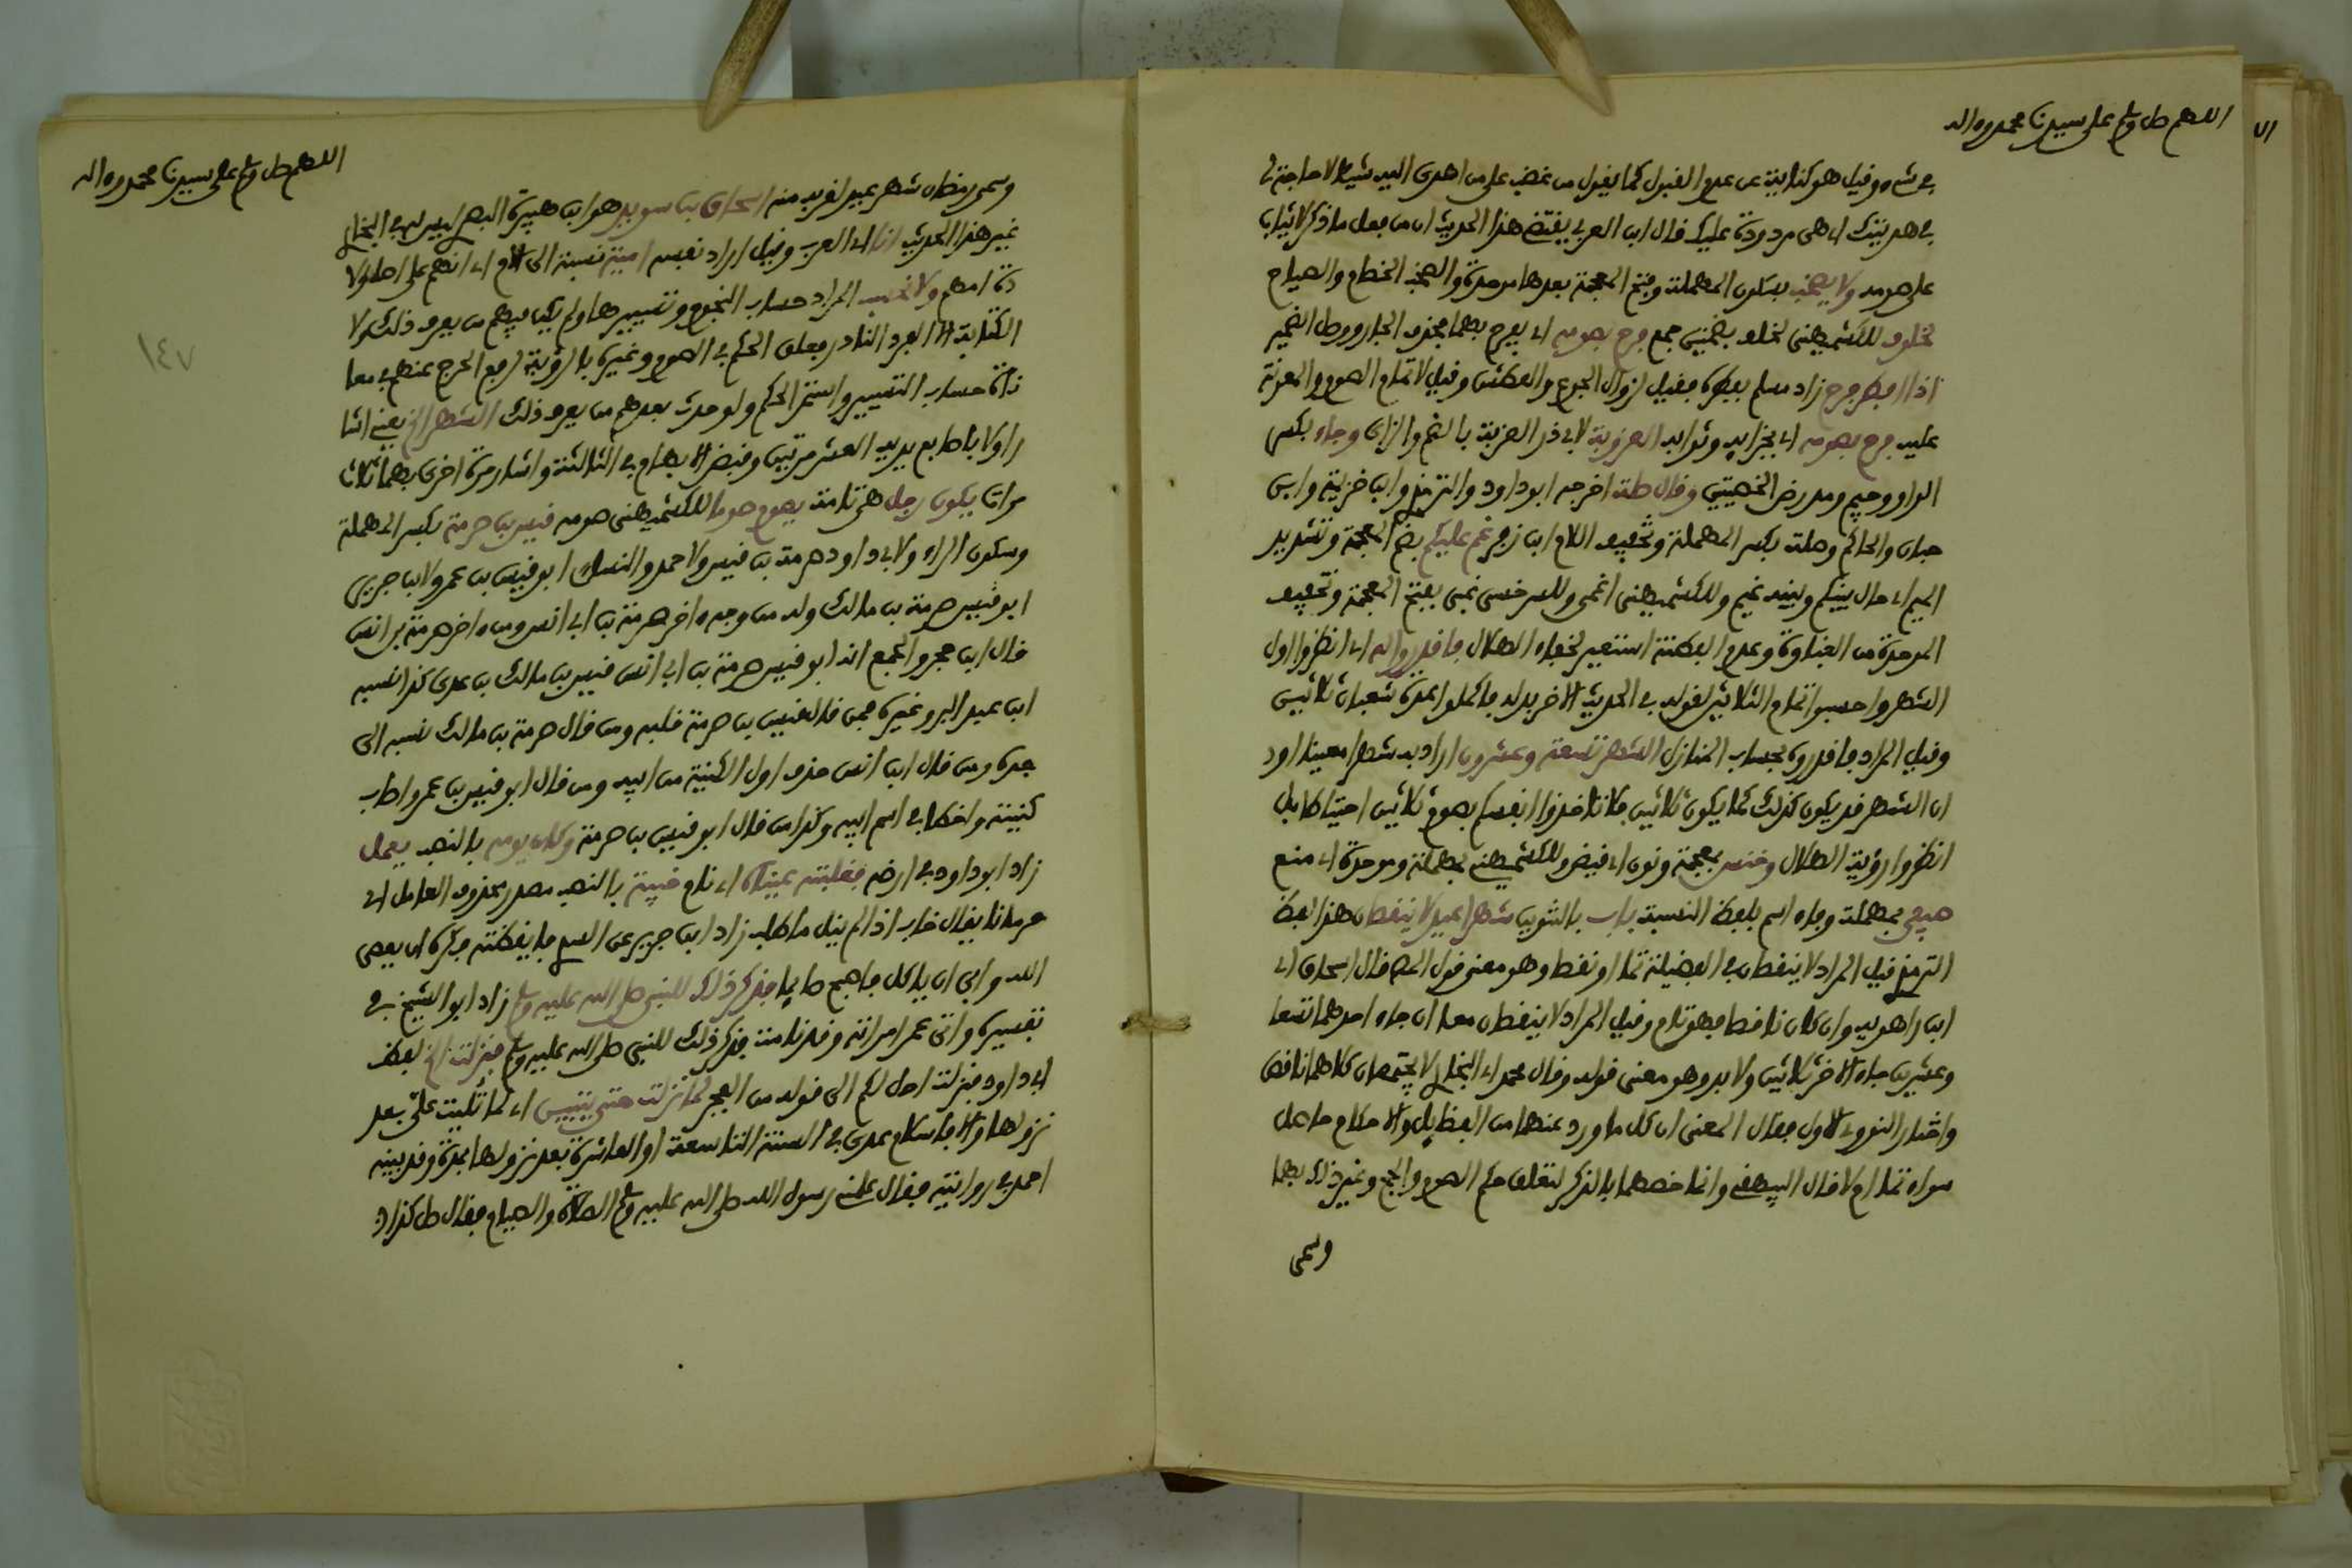 اللهم صل وسلم على سيدنا محمد وءاله
في شيء وقيل هو كناية عن عدم القبول كما يقول من غضب على من اهدى اليه شيئا لا حاجة لي
في هديتك اي هي مردودة عليك قال ابن العربي يقتضي هذا الحديث ان من فعل ما ذكر لا يثاب
على صومه ولا يصخب بسكون المهملة وفتح المعجمة بعدها موحدة والصخب الخصام والصياح
لخلوف للكشميهني لخلف بضمتين جمع فرح بصومه اي يفرح بهما بحذف الجار ووصل الضمير
اذا افطر فرح زاد مسلم بفطره فقيل لزوال الجوع والعطش وقيل لاتمام الصوم والمعونة
عليه فرح بصومه اي بجزايه وثوابه العزوبة لابي ذر العزبة بالضم والزاي وجاء بكسر
الواو وجيم ومد رض الخصيتين وقال صلة اخرجه ابو داود والترمذي وابن خزيمة وابن
حبان والحاكم وصلة بكسر المهملة وتخفيف اللام ابن زفر غم عليكم بضم المعجمة وتشديد
الميم اي حال بينكم وبينه غيم وللكشميهني اغمي وللسرخسي غبي بفتح المعجمة وتخفيف
الموحدة من الغباوة وعدم الفطنة استعير لخفاء الهلال فاقدروا له اي انظروا اول
الشهر واحسبوا تمام الثلاثين لقوله في الحديث الاخر بدله فاكملوا عدة شعبان ثلاثين
وقيل المراد فاقدروه بحساب المنازل الشهر تسعة وعشرون اراد به شهرا معينا او
ان الشهر قد يكون كذلك كما يكون ثلاثين فلا تاخذوا انفسكم بصوم ثلاثين احتياطا بل
انظروا رؤية الهلال وخنس بمعجمة ونون اي قبض وللكشميهني بمهملة وموحدة اي منع
صيفي بمهملة وفاء اسم بلفظ النسبة باب بالتنوين شهرا عيد لا ينقصان هذا لفظ
الترمذي قيل المراد لا ينقصان في الفضيلة تما او نقصا وهو معنى قول المص قال اسحاق اي
ابن راهويه وان كان ناقصا فهو تمام وقيل المراد لا ينقصان معا ان جاء احدهما تسعا
وعشرين جاء الاخر ثلاثين ولا بد وهو معنى قوله وقال محمد اي البخاري لا يجتمعان كلاهما ناقص
واختار النووي الاول فقال المعنى ان كل ما ورد عنهما من الفضايل والاحكام حاصل
سواء تما ام لا قال البيهقي وانما خصهما بالذكر لتعلق حكم الصوم والحج وغير ذلك بهما
وسمى
اللهم صل وسلم على سيدنا محمد وءاله
١٤٧
وسمى رمضان شهر عيد لقربه منه اسحاق بن سويد هو ابن هبيرة البصري ليس له في البخاري
غير هذا الحديث انا اي العرب وقيل اراد نفسه امية نسبة الى الام اي انهم على اصل ولا
دة امهم ولا نحسب المراد حساب النجوم وتسييرها ولم يكن فيهم من يعرف ذلك ولا
الكتابة الا الفرد النادر فعلق الحكم في الصوم وغيره بالرؤية لرفع الحرج عنهم في معا
ناة حساب التسيير واستمر الحكم ولو حدث بعدهم من يعرف ذلك الشهر الخ يعني اشا
ر اولا باصابع يديه العشر مرتين وقبض الابهام في الثالثة واشار مرة اخرى بهما ثلاث
مرات يكون رجل هي تامة يصوم صوما للكشميهني صومه قيس بن صرمة بكسر المهملة
وسكون الراء ولابي داود صرمة بن قيس ولاحمد والنسائي ابو قيس بن عمرو ولابن جرير
ابو قيس صرمة بن مالك وله من وجه ءاخر صرمة بن ابي انس ومن ءاخر صرمة بن انس
قال ابن حجر والجمع انه ابو قيس صرمة بن ابي انس قيس بن مالك بن عدي كذا نسبه
ابن عبد البر وغيره فمن قال قيس بن صرمة قلبه ومن قال صرمة بن مالك نسبه الى
جده ومن قال ابن انس حذف اول الكنية من ابيه ومن قال ابو قيس بن عمرو اصاب
كنيته واخطا في اسم ابيه وكذا من قال ابو قيس بن صرمة وكان يومه بالنصب يعمل
زاد ابو داود في ارضه فغلبته عيناه اي نام خيبة بالنصب مصدر محذوف العامل اي
حرمانا يقال خاب اذا لم ينل ما طلب زاد ابن جرير عن السدي فايقظته فكره ان يعصي
الله وابى ان ياكل فاصبح صايما فذكر ذلك للنبي صلى الله عليه وسلم زاد ابو الشيخ في
تفسيره واتى عمر امراته وقد نامت فذكر ذلك للنبي صلى الله عليه وسلم فنزلت الخ لفظ
ابي داود فنزلت احل لكم الى قوله من الفجر لما نزلت حتى يتبين اي لما تليت علي بعد
نزولها والا فاسلام عدي في السنة التاسعة او العاشرة بعد نزولها بمدة وقد بينه
احمد في روايته فقال علمني رسول الله صلى الله عليه وسلم الصلاة والصيام فقال صل كذا و